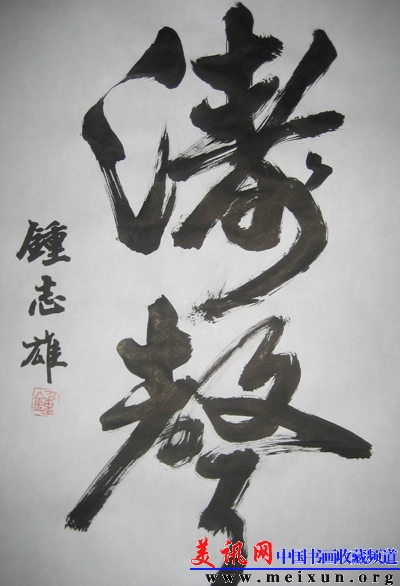 濤聲
鍾志雄
美讯网 中国书画收藏频道
www.meixun.org